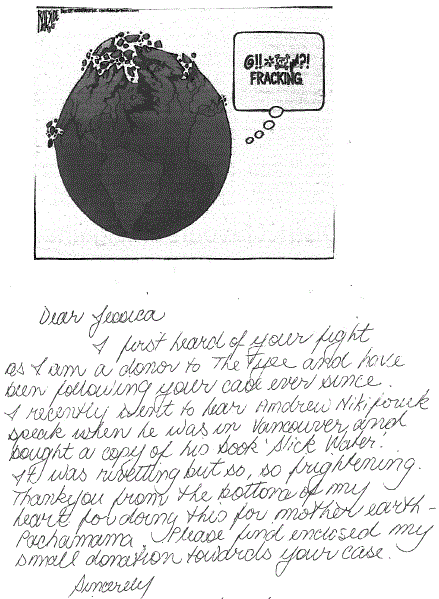 @!!*#!?!
FRACKING
Dear Jessica
I first heard of your fight
as I am a donor to The Tyee and have
been following your case ever since.
I recently went to hear Andrew Nikiforuk
speak when he was in Vancouver and
bought a copy of his book 'Slick Water'.
It was rivetting but so, so frightening.
Thankyou from the bottom of my
heart for doing this for mother earth -
Pachamama. Please find enclosed my
small donation towards your case.
Sincerely